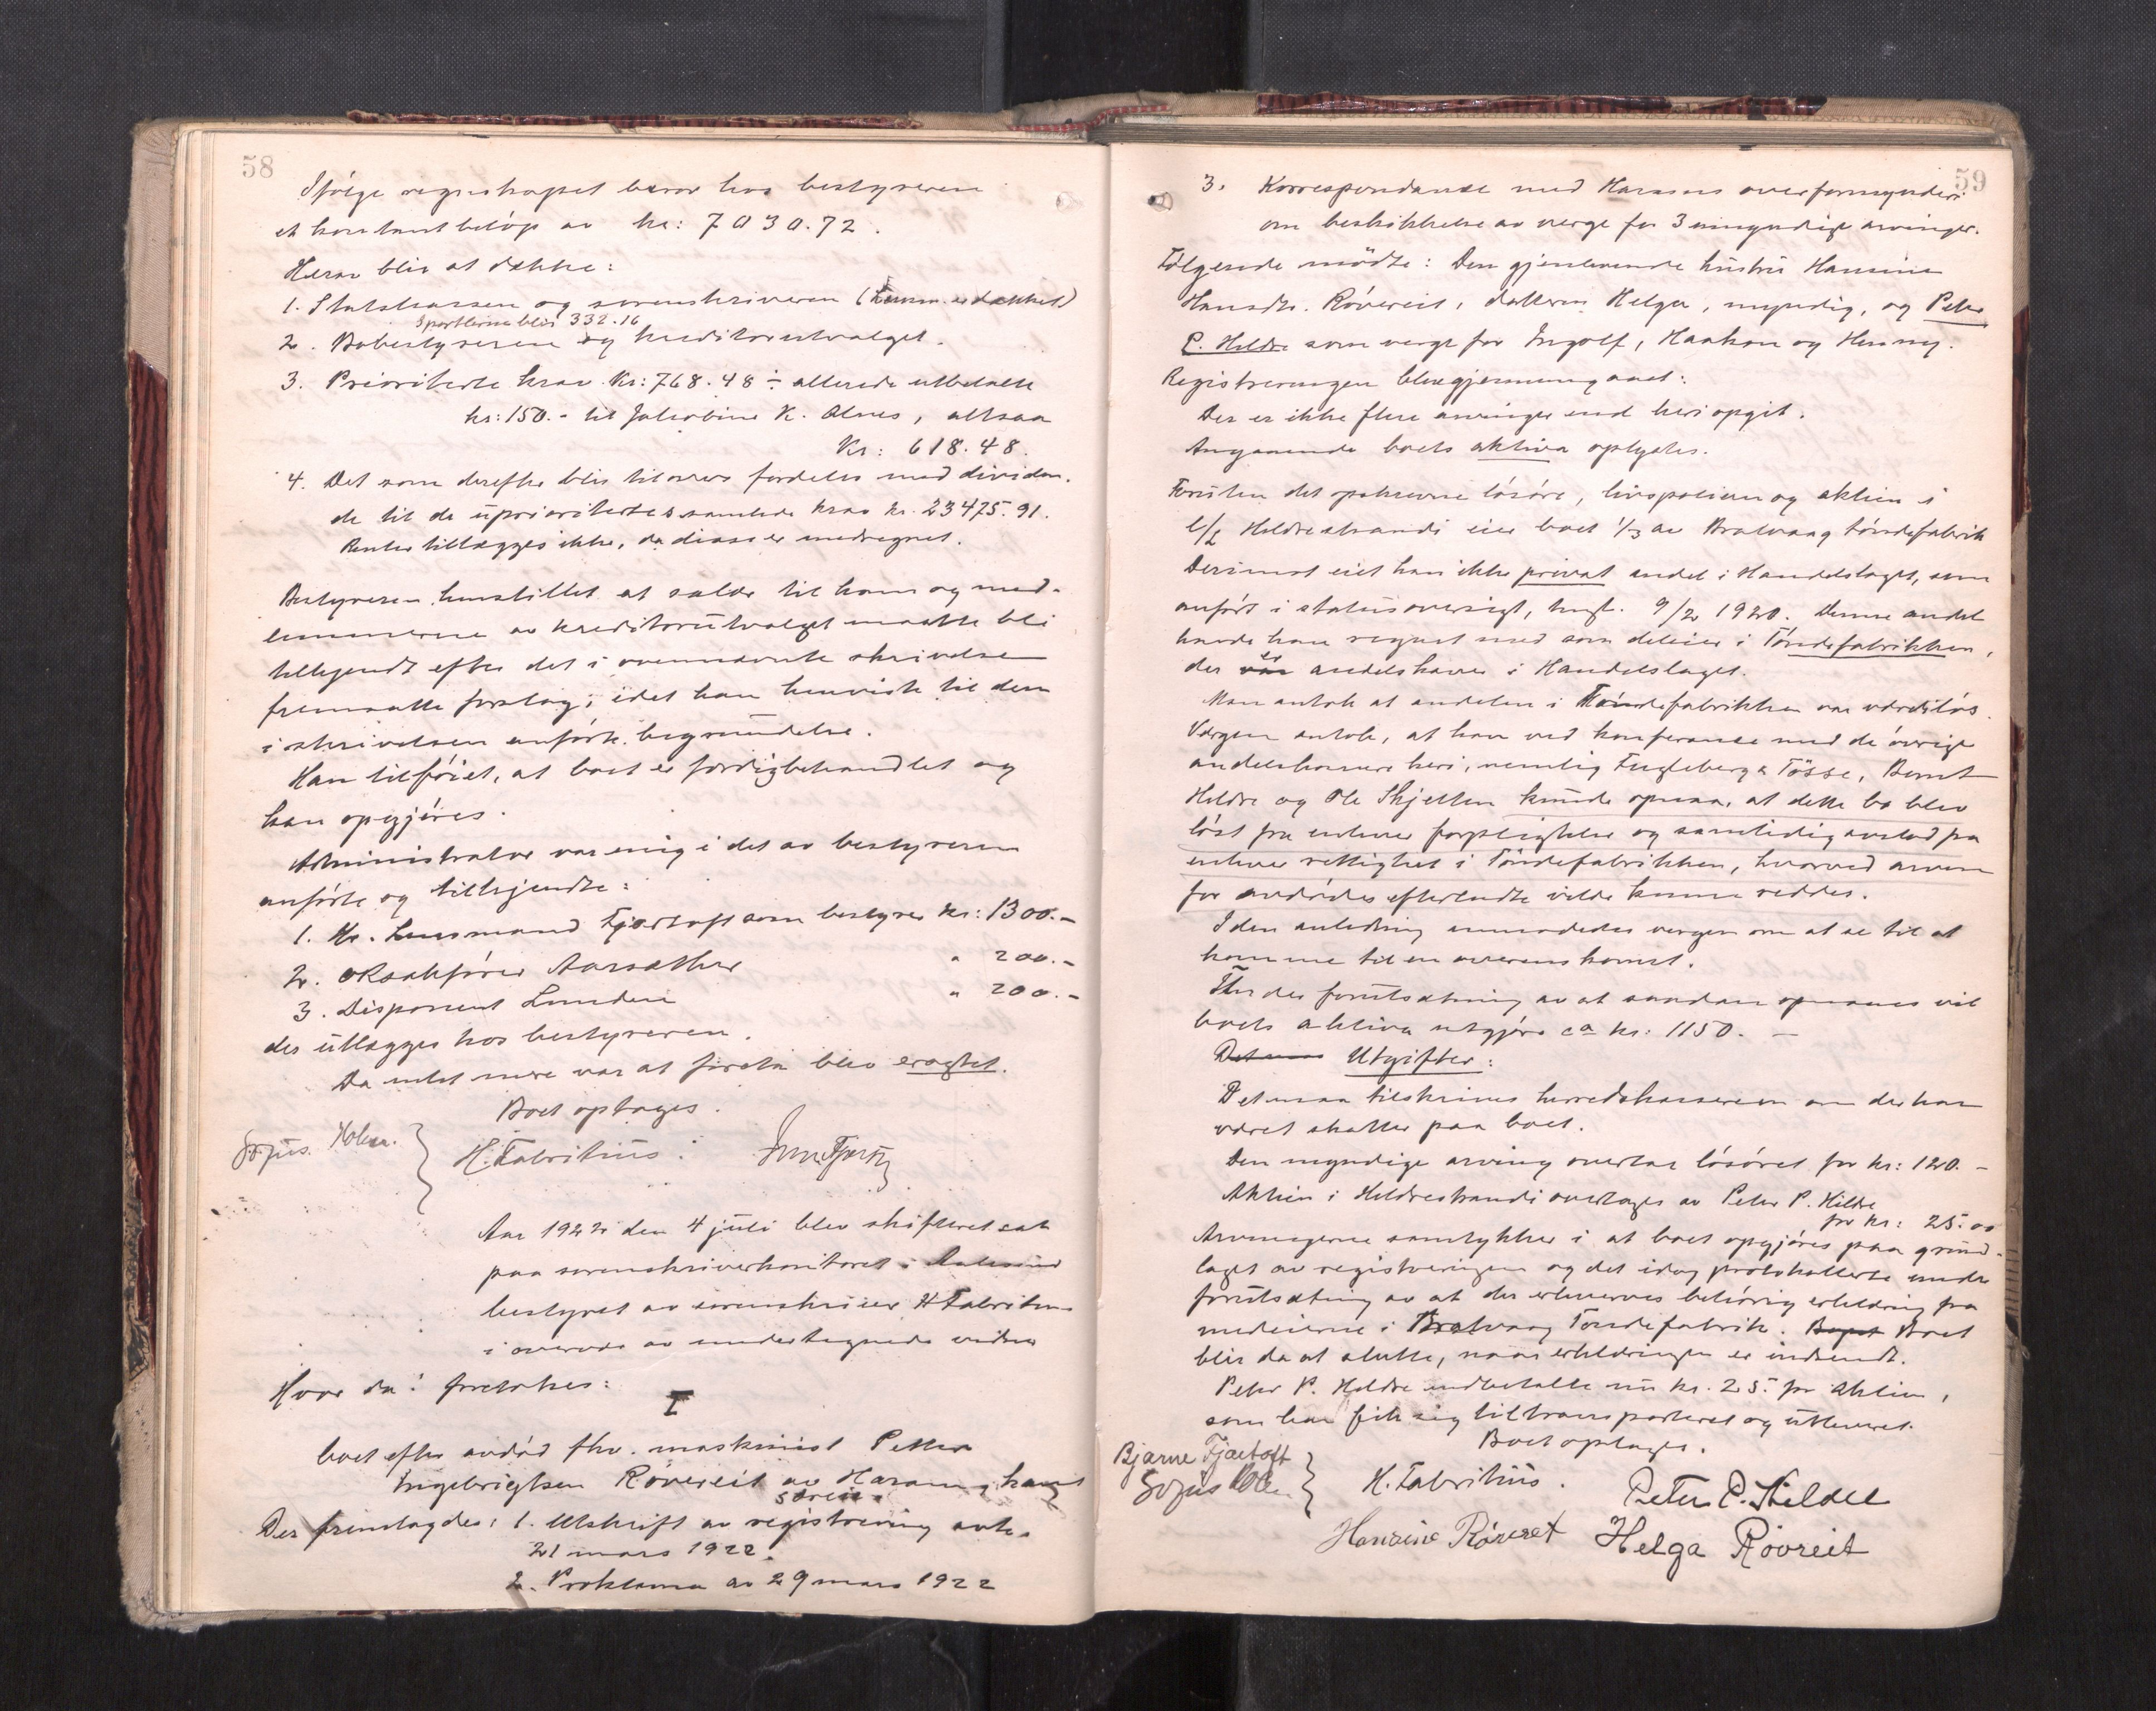 58
Ifølge regnskapet beror hos bestyreren
et kontant beløp av kr: 7030.72.
Herav blir at dække:
1. Statskassen og sorenskriveren ( er dækket)
Sportlerne blir 332.16
2. Bobestyreren og kreditorutvalget.
3. Prioriterte krav kr: 768.48 ÷ allerede utbetalte
kr: 150.- til Jakobine K. Alnes, altsaa
Kr: 618.48.
4. Det som derefter blir tilovers fordeles med dividen-
de til de uprioritertes samlede krav kr. 23475.91.
Renter tillægges ikke, da disse er medregnet.
Bestyreren henstillet at salær til ham og med-
lemmerne av kreditorutvalget maatte bli
tilkjendt efter det i ovennævnte skrivelse
fremsatte forslag, idet han henviste til den
i skrivelsen anførte begrundelse.
Han tilføiet, at boet er færdigbehandlet og
kan opgjøres.
Administrator var enig i det av bestyreren
anførte og tilkjendte:
1. Hr. Lensmand Fjørtoft som bestyrer kr: 1300.-
2. Orsakfører Aarsæther " 200.-
3. Disponent Lunden " 200.-
der utlægges hos bestyreren.
Da intet mere var at foreta blev eragtet.
Boet optages.
Sofus Holm. H. Fabritius.
Aar 1922 den 4 juli blev skifteret sat
paa sorenskriverkontoret i Aalesund
bestyret av sorenskriver H Fabritius
i overvær av undertegnede vidner
Hvor da: foretokes:
I
boet efter avdød fhv. maskinist Petter
Ingebrigtsen Røvereit av Haram, hans
særeie.
Der fremlagdes: 1. Utskrift av registrering avh.
21 mars 1922.
2. Proklama av 29 mars 1922
59
3. Korrespondanse med Harams overformynderi
om beskikkelse av verge for 3 umyndige arvinger.
Følgende mødte: Den gjenlevende hustru Hansine
Hansdtr. Røvereit, datteren Helga, myndig, og Peter
P. Hildre som verge for Ingolf, Haakon og Henny.
Registreringen blev gjennemgaaet:
Der er ikke flere arvinger end heri opgit.
Angaaende boets aktiva oplystes.
Foruten det opskrevne løsøre, livspolisen og aktien i
A/L Hildrestrandi eier boet 1/3 av Bratvaag Tøndefabrik
Derimot eiet han ikke privat andel i Handelslaget, som
anført i statusoversigt, tingl. 9/2 1920. Denne andel
havde han regnet med som deleier i Tøndefabrikken,
der er andelshaver i Handelslaget.
Man antok at andelen i Tøndefabrikken var værdiløs.
Vergen antok, at han ved konferanse med de øvrige
andelshavere heri, nemlig Fugleberg & Tøsse, Bernt
Hildre og Ole Skjelten kunde opnaa, at dette bo blev
løst fra enhver forpligtelse og samtidig avstod fra
enhver rettighet i Tøndefabrikken, hvorved arven
for avdødes efterladte vilde kunne reddes.
I den anledning anmodedes vergen om at se til at
komme til en overenskomst.
Under forutsætning av at saadan opnaaes vil
boets aktiva utgjøre ca kr: 1150. -
Utgifter:
Det maa tilskrives herredskassereren om der har
været skatter paa boet.
Den myndige arving overtar løsøret for kr: 120. -
Aktien i Hildrestrandi overtages av Peter P. Hildre
for kr: 25.00
Arvingerne samtykker i at boet opgjøres paa grund-
laget av registreringen og det idag protokollerte under
forutsætning av at der erhverves behørig erklæring fra
medeierne i Bratvaag Tøndefabrik. Boet
blir da at slutte, naar erklæringen er indsendt.
Peter P. Hildre indbetalte nu kr. 25. for aktien,
som han fik sig tiltransporteret og utleveret.
Boet optages.
Bjarne Fjørtoft
Sofus Holm H. Fabritius. Peter P. Hildre
Hansine Røveret Helga Røvreit